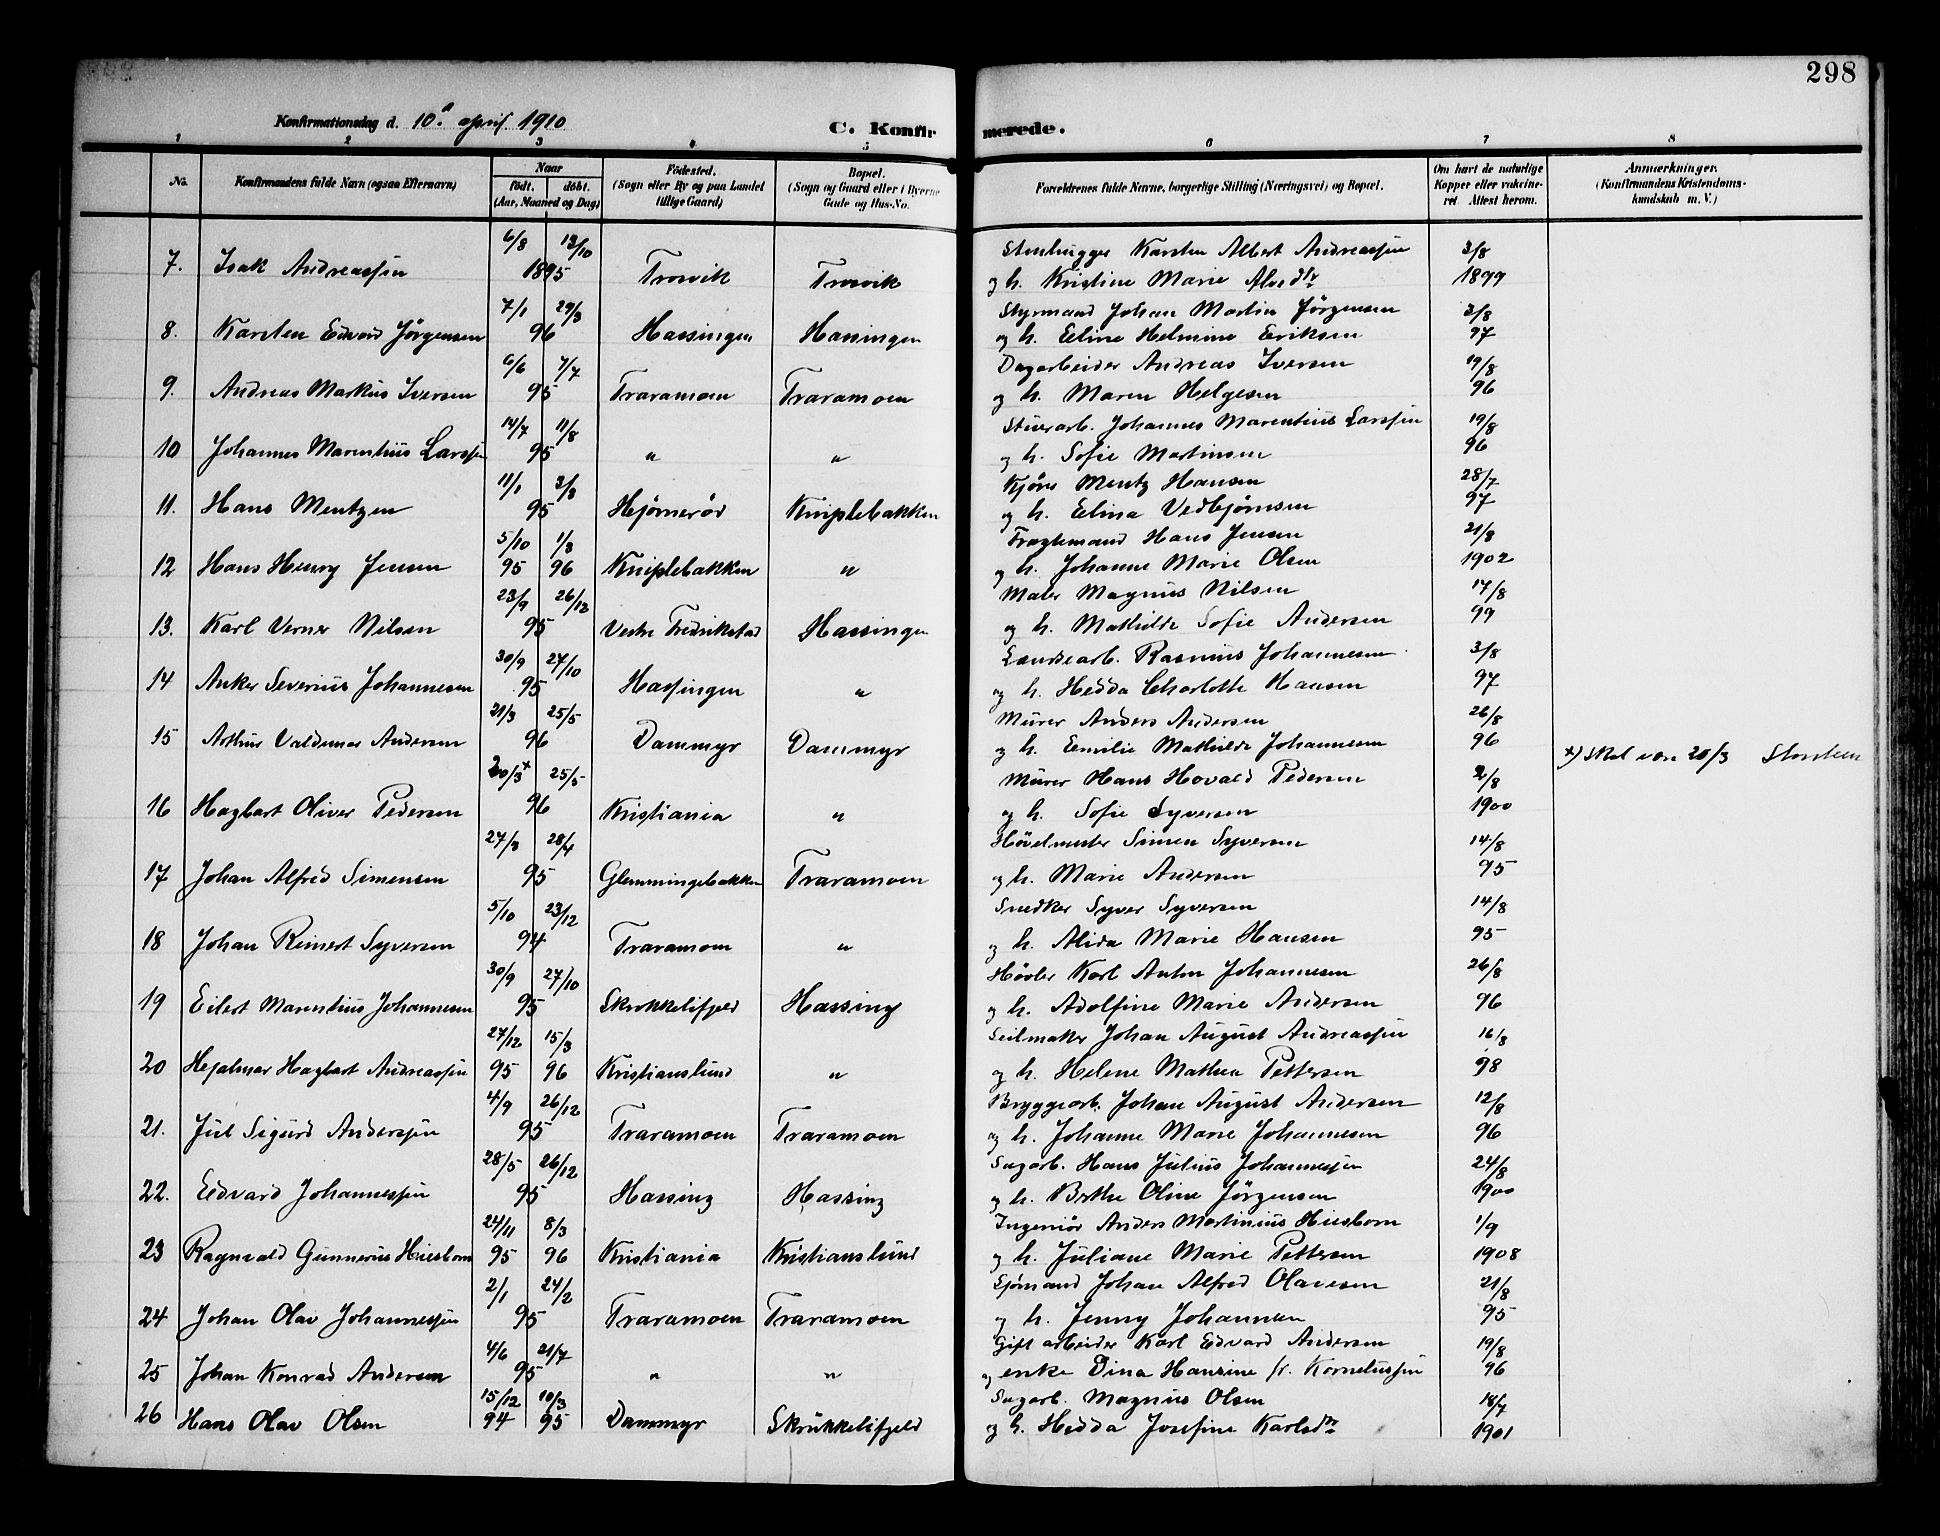 298
Konfirmationsdag d. 10. april 1910
C. Konfirmerede.
1 2 3 4 5 6 7 8
No. Konfirmandens fulde Navn (ogsaa Efternavn) Naar født. døbt. (Aar, Maaned og Dag) Fødested. (Sogn eller By og paa Landet tillige Gaard) Bopæl. (Sogn og Gaard eller i Byerne Gade og Hus-No. Forældrenes fulde Navne, borgerlige Stilling (Næringsvei) og Bopæl. Om havt de naturlige Kopper eller vaksineret Attest herom. Anmærkninger. (Konfirmandens Kristendomskundskab m. V.)
6/8 13/10 Stenhugger Karsten Albert Andreassen 3/8
7. Isak Andreassen 1895 Trosvik Trosvik og h. Kristine Marie 1899
7/1 29/3 Styrmand Johan Martin Jørgensen 3/8
8. Karsten Edvard Jørgensen 96 Hassingen Hassingen og h. Eline Helmine Eriksen 97
6/6 7/7 Dagarbeider Andreas Iversen 19/8
9. Andreas Markus Iversen 95 Traramoen Traramoen og h. Maren Helgesen 96
14/7 11/8 Stuerarb. Johannes Marentius Larssen 19/8
10 Johannes Marentius Larssen 95 " " og h. Sofie Martinsen 96
11/1 3/3 Kjøre Mentz Hansen 28/7
11. Hans Mentzen 95 Hjørnerød Kniplebakken og h. Elina Vedbjørnsen 97
5/10 1/3 Fragtemand Hans Jensen 21/8
12 Hans Henry Jensen 95 96 Kniplebakken " og h. Johanne Marie Olsen 1902
23/9 26/12 Maler Magnus Nilsen 17/8
13. Karl Verner Nilsen 95 Vestre Fredrikstad Hassingen og h. Mathilde Sofie Andersen 99
30/9 27/10 Landsearb. Rasmus Johannesen 3/8
14 Anker Severius Johannesen 95 Hassingen " og h. Hedda Charlotte Hansen 97
21/3 25/5 Murer Anders Andersen 26/8
15 Arthur Valdemar Andersen 96 Dammyr Dammyr og h. Emilie Mathilde Johannesen 96
x) Skal være 20/3
20/3 x 25/5 Murer Hans Hovald Pedersen 2/8
16 Hagbart Oliver Pedersen 96 Kristiania " og h. Sofie Syversen 1900
27/3 28/4 Høvelmester Simen Syversen 14/8
17 Johan Alfred Simensen 95 Glemmingebakken Traramoen og h. Marie Andersen 95
5/10 23/12 Snedker Syver Syversen 14/8
18 Johan Reinert Syversen 94 Traramoen " og h. Alida Marie Hansen 95
30/9 27/10 Høvler Karl Anton Johannesen 26/8
19 Eilert Marentius Johannesen 95 Skrokkelifjeld Hassing og h. Adolfine Marie Andersen 96
27/12 15/3 Seilmaker Johan August Andreassen 16/8
20 Hejalmar Hagbart Andreassen 95 96 Kristianslund " og h. Helene Mathea Pettersen 98
4/9 26/12 Bryggearb. Johan August Andersen 12/8
21. Jul Sigurd Anderssen 95 Traramoen Traramoen og h. Johanne Marie Johannesen 96
28/5 26/12 Sagarb. Hans Julius Johannessen 24/8
22. Edvard Johannessen 95 Hassing Hassing og h. Berthe Oline Jørgensen 1900
24/11 8/3 Ingeniør Anders Martinius Huesborn 1/9
23 Ragnvald Gunnerius Huesborn 95 96 Kristiania Kristianslund og h. Juliane Marie Pettersen 1908
2/1 24/2 Sjømand Johan Alfred Olavesen 21/8
24 Johan Olav Johannessen 95 Traramoen Traramoen og h. Jenny Johannsen 95
4/6 21/7 Gift arbeider Karl Edvard Andersen 19/8
25 Johan Konrad Andersen 95 " " og enke Dina Hansine f. Korneliussen 96
15/12 10/3 Sagarb. Magnus Olsen 18/7
26 Hans Olav Olsen 94 95 Dammyr Skrukkelifjeld og h. Hedda Josefine Karlsdtr 1901